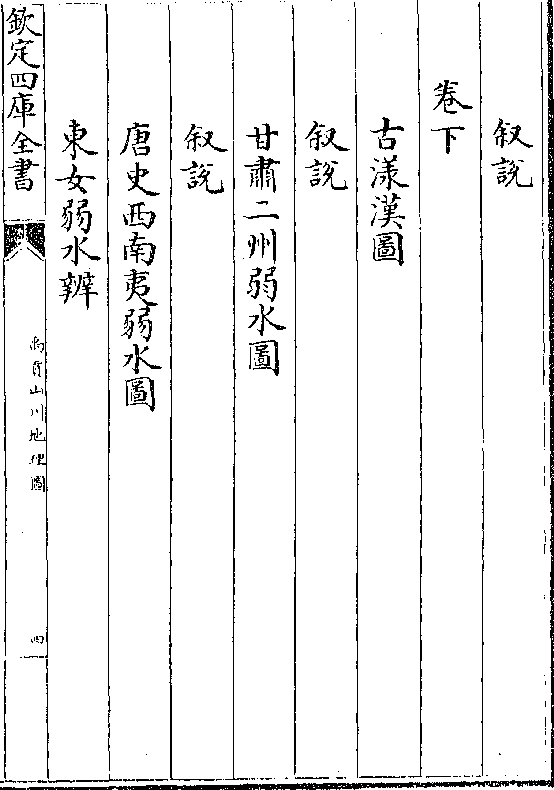 叙説
卷下
古漾漢圖
叙説
甘肅二州弱水圖
叙説
唐史西南夷弱水圖
東女弱水辨
欽定四庫全書
禹貢山川地理圖
四